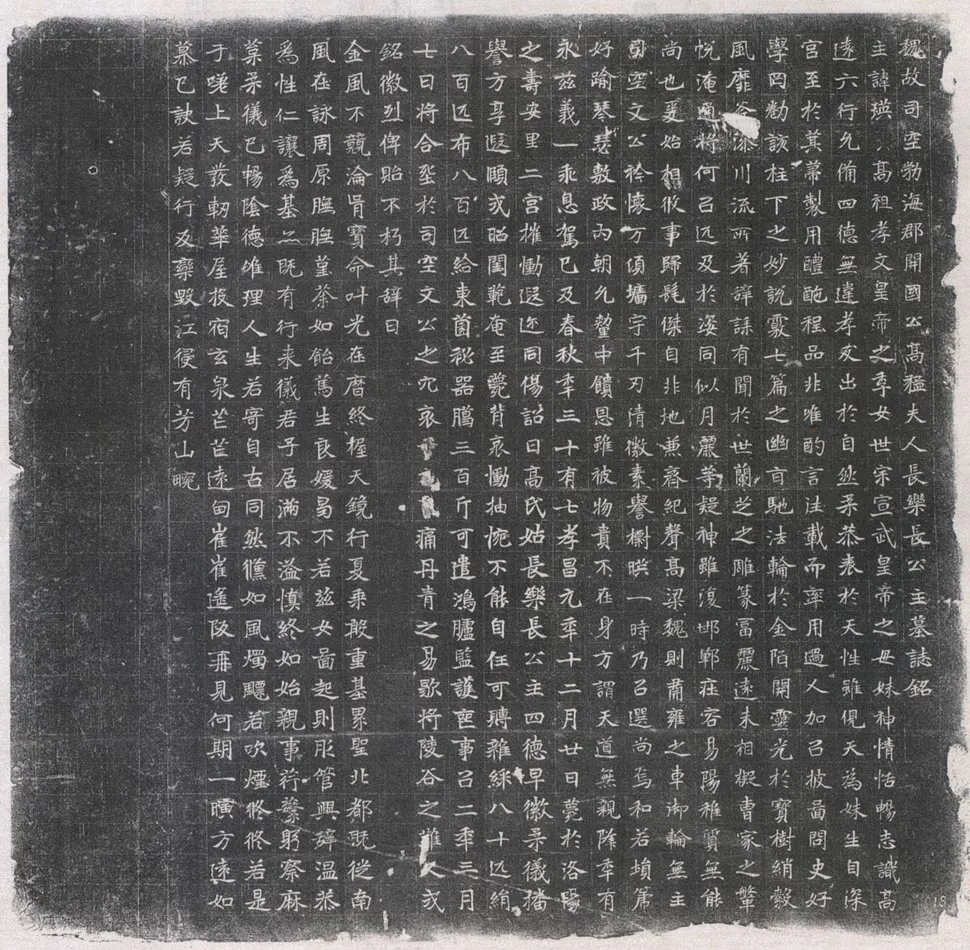 魏故司空勃海郡開國公高猛夫人長樂長公主墓誌銘
主諱瑛高祖孝文皇帝之季女世宗宣武皇帝之母妹神情恬暢志識高
遠六行允備四德無違孝友出於自然柔恭表於天性雖俔天為妹生自深
宮至於箕帚製用醴酏程品非唯酌言往載而率用過人加以披圖問史好
學罔勌該柱下之妙說覈七篇之幽旨馳法輪於金陌開靈光於寶樹綃縠
風靡谷川流所著辭誄有聞於世蘭芝之雕篆富麗遠未相擬曹家之
悅淹通將何以远及於姿同似月麗等疑神雖復邯鄲莊容易陽稚質無能
尚也爰始相攸事歸髦傑自非地兼齊紀聲高梁魏則肅雍之車御輪無主
司空文公衿懷万頃墉宇千刃情徽素譽櫛映一時乃以選尚焉和若塤箎
好踰琴瑟敷政內朝允釐中饋恩雖被物貴不在身方謂天道無親降季有
永兹義一乖息駕已及春秋季三十有七孝昌元季十二月廿日薨於洛陽
之壽安里二宮摧慟遐迩同傷詔曰高氏姑長樂長公主四德早徽柔儀播
譽方享遐頤式昭閨範奄至薨背哀慟抽惋不能自任可賻雜綵八十匹絹
八百匹布八百匹給東園祕器臈三百斤可遣鴻臚監護喪事以二季三月
七日將合塟於司空文公之穴哀痛丹青之易歇將陵谷之難久或
銘徽烈俾貽不朽其辭曰
金風不競淪胥寶命叶光在曆終握天鏡行夏乘殷重基累聖北都既從南
風在詠周原膴膴堇荼如飴篤生良媛曷不若兹女啚起則彤管興辭温恭
為性仁讓為基亦既有行来儀君子居滿不溢慎終如始親事荇蘩躬察麻
菜柔儀已暢陰德唯理人生若寄自古同然儵如風燭飃若吹煙悠悠若是
于嗟上天發軔華屋援宿玄泉芒芒遠甸崔崔遙阪再見何期一曠方遠如
慕已訣若疑行反欒毀江侵有芳山畹